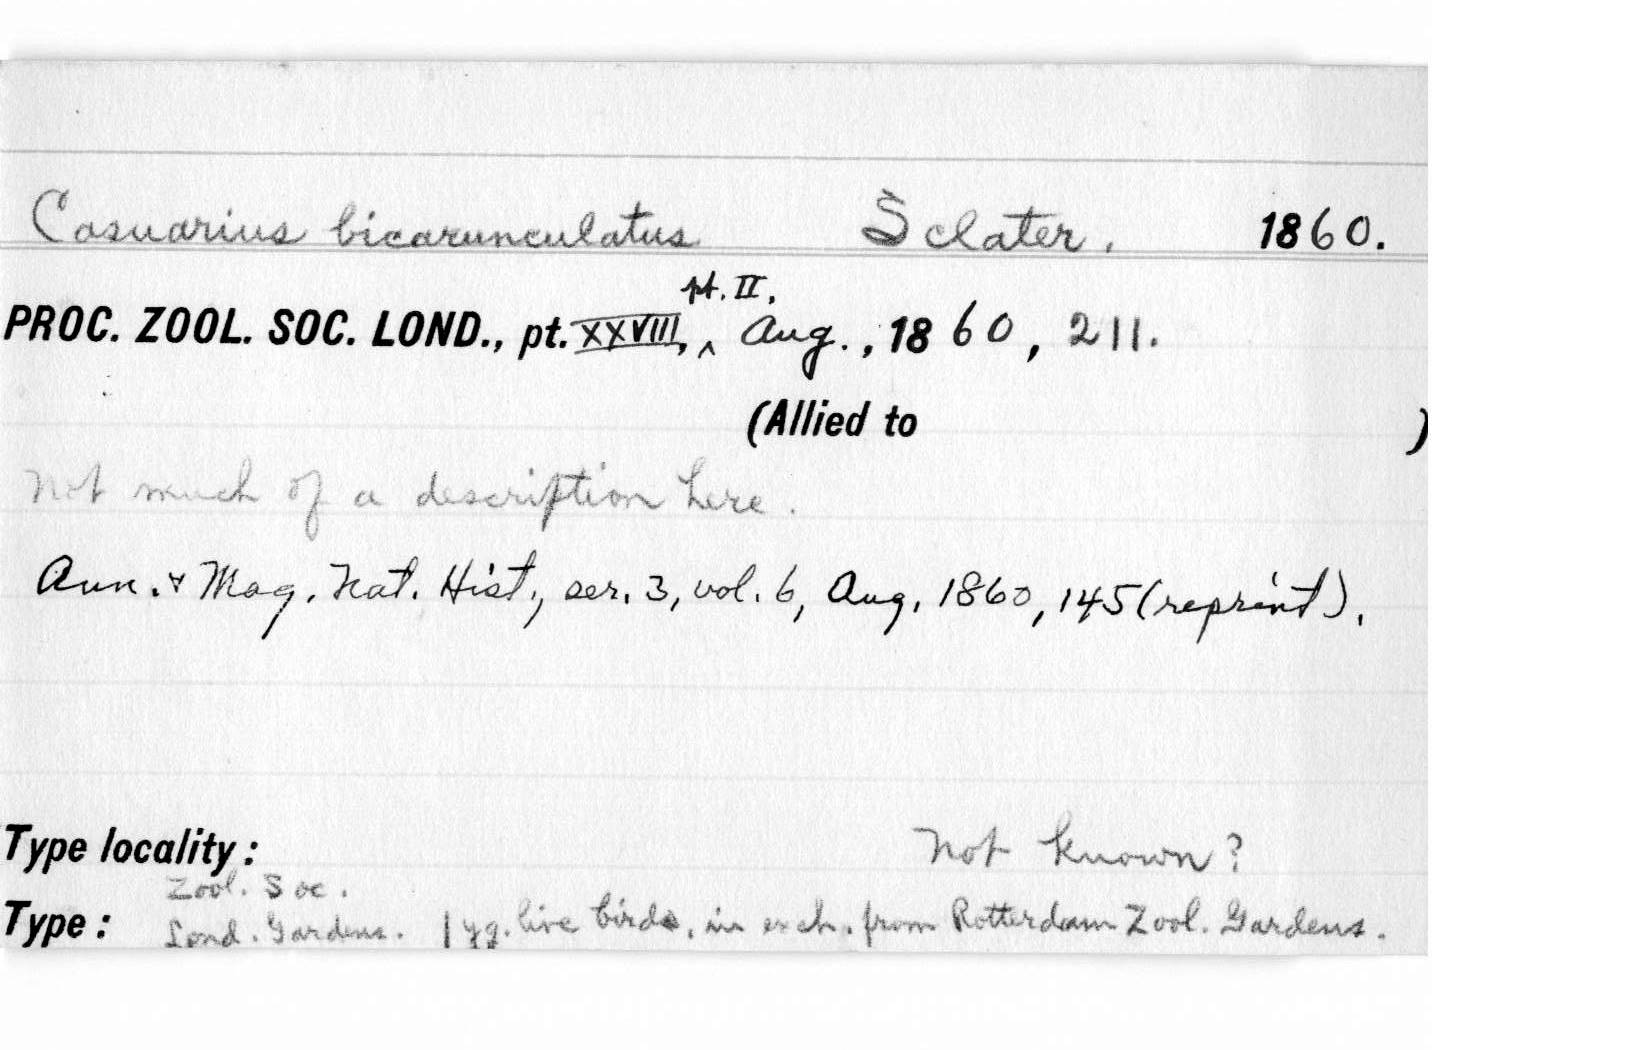 Casuarius bicarunculatus Sclater. 1860.
pt. II.
PROC. ZOOL. SOC. LOND., pt. XXVIII, ^ Aug., 1860, 211.
(Allied to )
Not much of a description here.
Ann. & Mag. Nat. Hist., ser. 3, vol. 6, Aug. 1860, 145 (reprint).
Type locality: Not known?
Zool. Soc.
Type: Lond. Gardens. 1 yg. live birds, in exch. from Rotterdam Zool. Gardens.